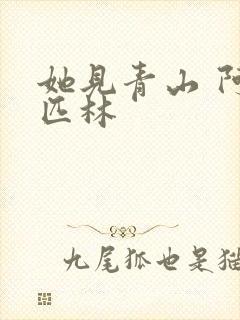 她见青山 阿
匹林
九尾狐也是猫